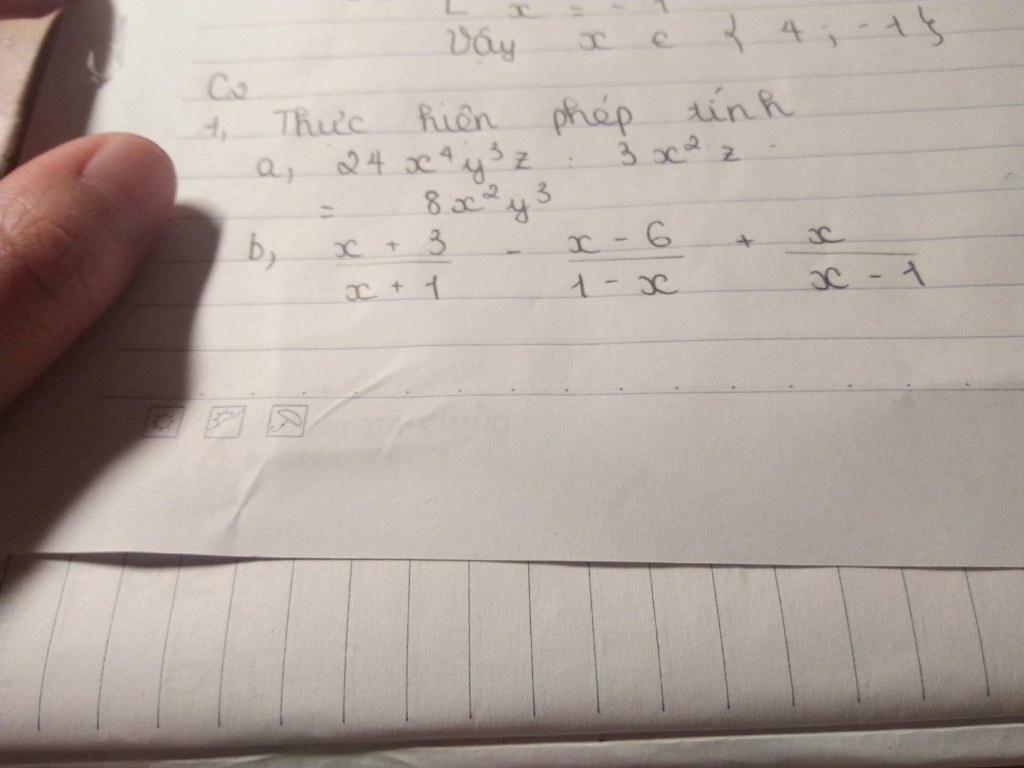 x = -1
Vậy x ∈ { 4 ; -1 }
C2
1, Thực hiện phép tính
a, 24 x⁴y³z : 3x²z
= 8x²y³
b, (x + 3)/(x + 1) - (x - 6)/(1 - x) + x/(x - 1)